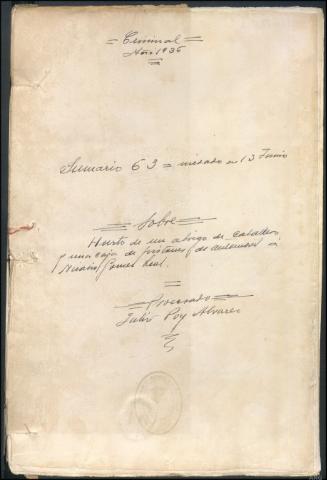 = Criminal =
Año 1936
Sumario 63 = iniciado en 13 Junio
= Sobre =
Hurto de un abrigo de caballero
y una caja de de automovil a
Gomez Leal.
= Procesado =
Julio Poy Alvarez